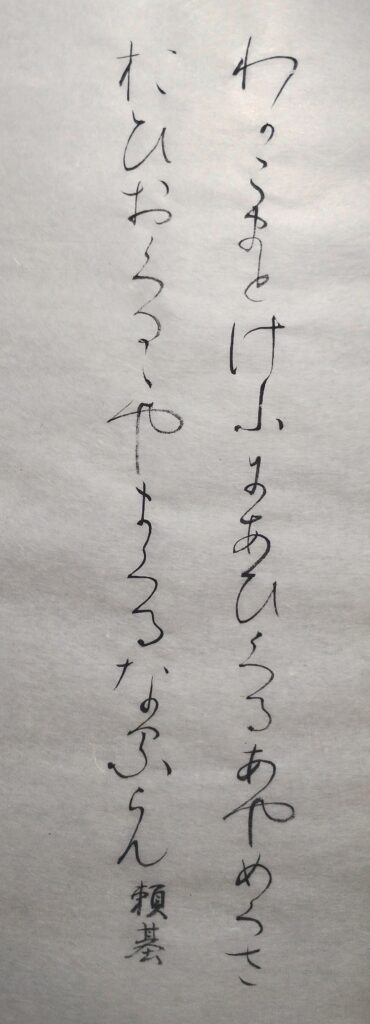 わかこまとけふにあひくるあやめくさ
おひおくるゝやまくるなるらん
頼基